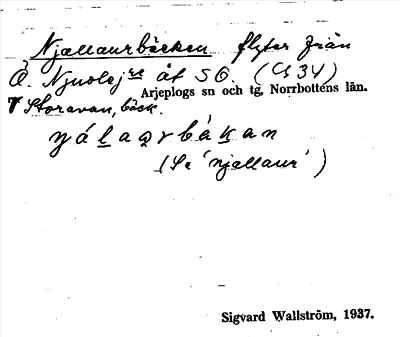 Njallaurbäcken flyter från
Ö. Njuolej åt SO. (Cs 34)
Arjeplogs sn och tg, Norrbottens län.
Storavan, bäck.
njálaqrbäkan
(Se 'njallaur')
Sigvard Wallström, 1937.